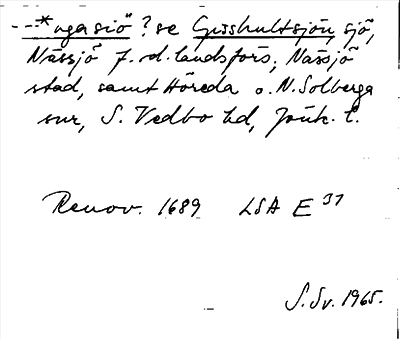 ---*ugasiö ? se Gisshultsjön, sjö,
Nässjö f.d. landsförs., Nässjö
stad, samt Höreda o. N. Solberga
snr, S. Vedbo hd, Jönk. l.
Renov. 1689 LSA E 37
S. Sv. 1965.